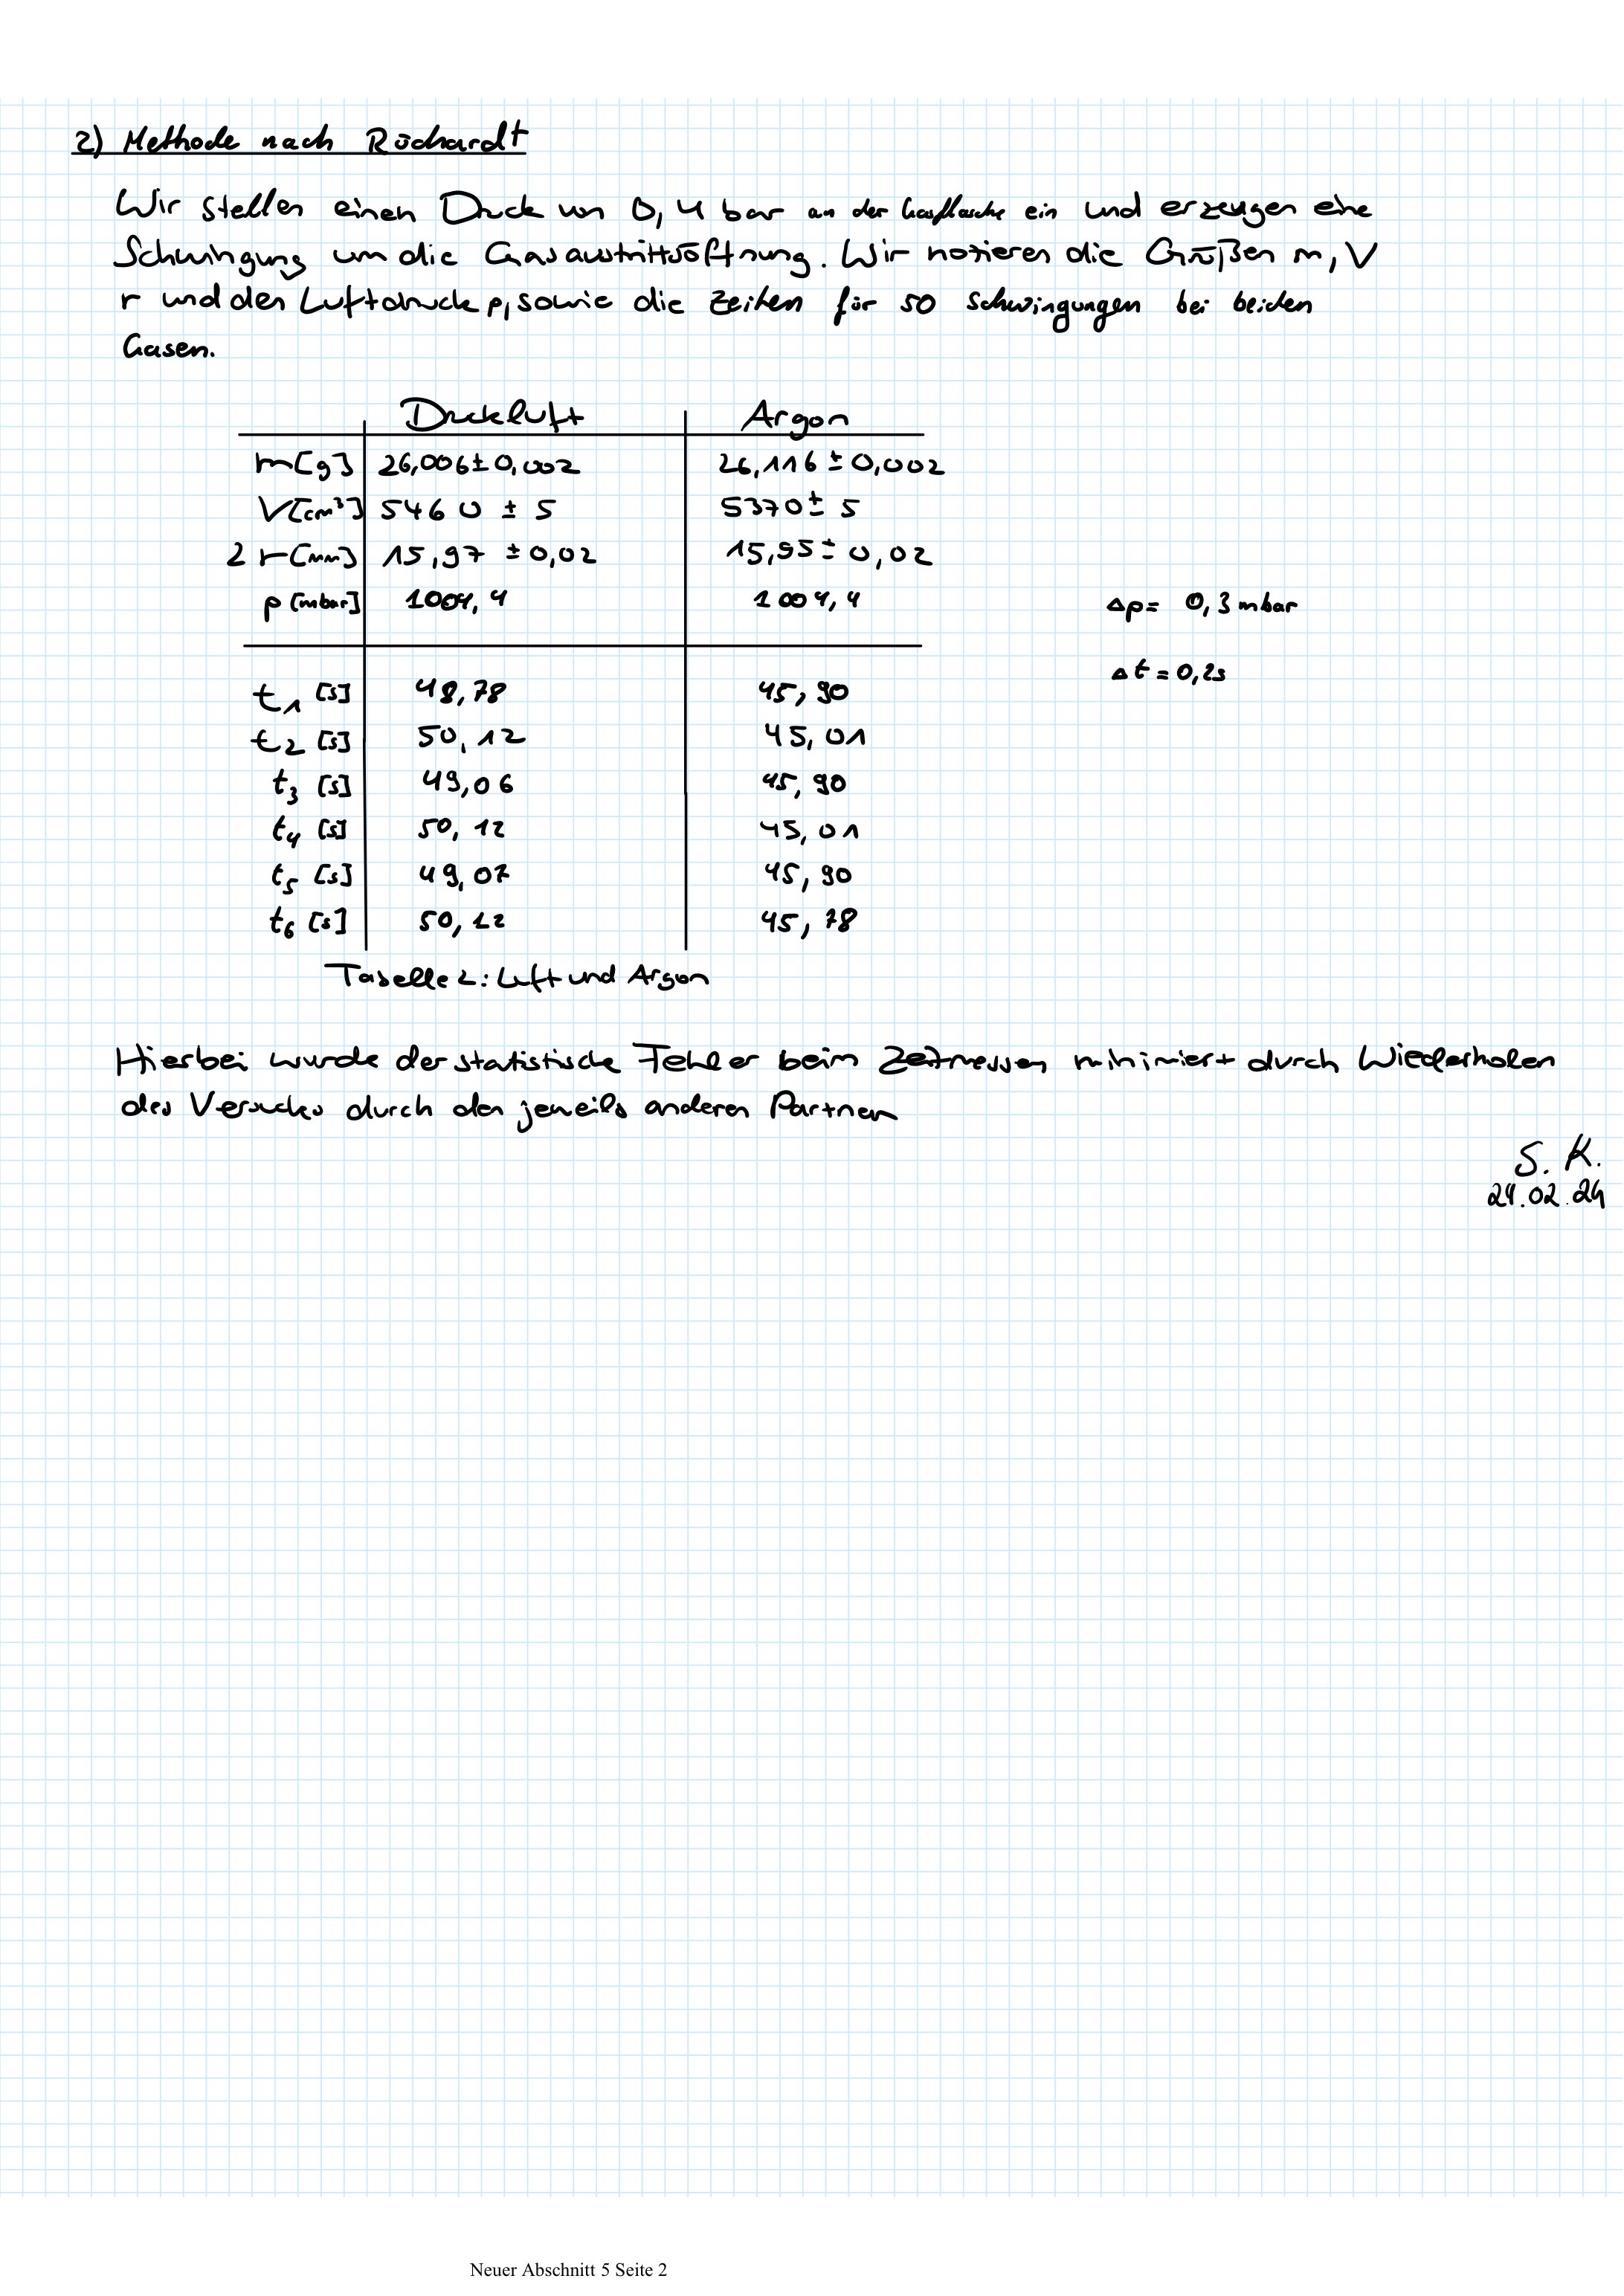 2) Methode nach Rüchardt
Wir stellen einen Druck von 0,4 bar an der Gasflasche ein und erzeugen eine
Schwingung um die Gasaustrittsöffnung. Wir notieren die Größen m, V
r und den Luftdruck p, sowie die Zeiten für 50 Schwingungen bei beiden
Gasen.
Druckluft Argon
m[g] 26,006 ± 0,002 26,116 ± 0,002
V[cm³] 5460 ± 5 5370 ± 5
2 r[mm] 15,97 ± 0,02 15,95 ± 0,02
p [mbar] 1004,4 1004,4 Δp = 0,3 mbar
Δt = 0,2s
t₁ [s] 48,78 45,90
t₂ [s] 50,12 45,01
t₃ [s] 49,06 45,90
t₄ [s] 50,12 45,01
t₅ [s] 49,07 45,90
t₆ [s] 50,12 45,78
Tabelle 2: Luft und Argon
Hierbei wurde der statistische Fehler beim Zeitmessen minimiert durch Wiederholen
des Versuches durch den jeweils anderen Partner
S. K.
24.02.24
Neuer Abschnitt 5 Seite 2